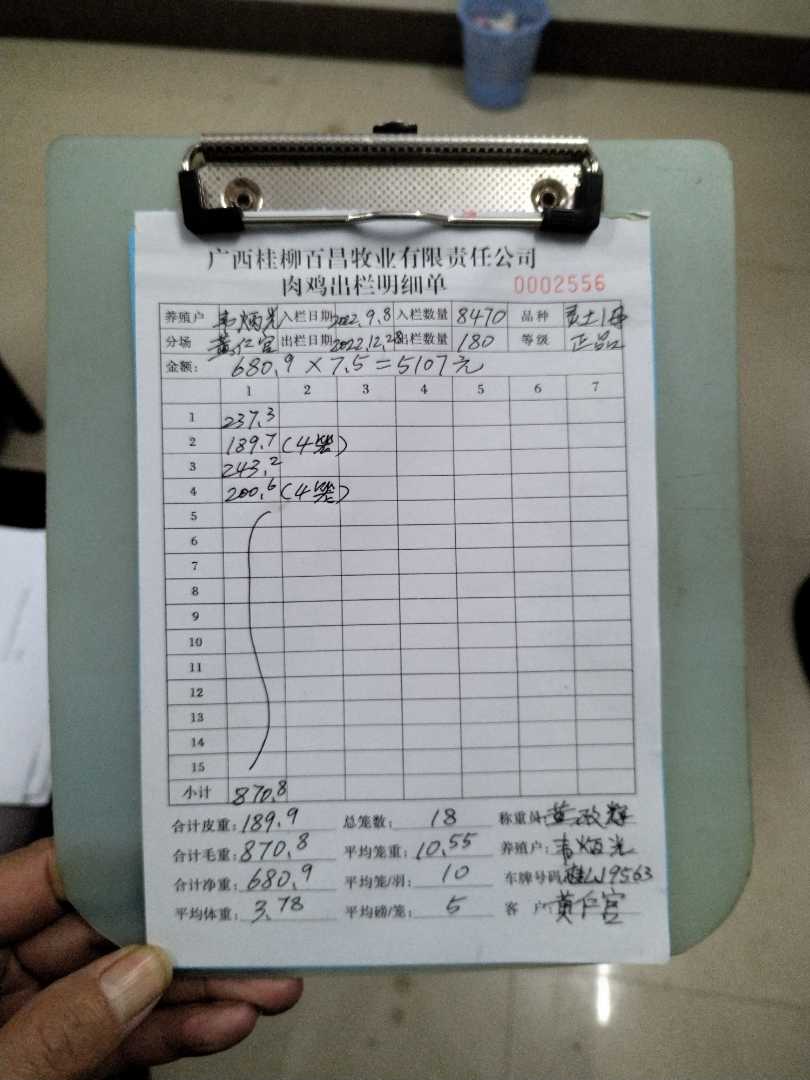 广西桂柳百昌牧业有限责任公司
肉鸡出栏明细单 0002556
养殖户 韦炳光 入栏日期 2022.9.8 入栏数量 8470 品种
分场 黄仁官 出栏日期 2022.12.28 出栏数量 180 等级 正品
金额: 680.9×7.5=5107元
1 2 3 4 5 6 7
1 237.3
2 189.7 (4笼)
3 243.2
4 200.6 (4笼)
5
6
7
8
9
10
11
12
13
14
15
小计 870.8
合计皮重: 189.9 总笼数: 18 称重员: 黄政辉
合计毛重: 870.8 平均笼重: 10.55 养殖户: 韦炳光
合计净重: 680.9 平均笼/羽: 10 车牌号码: 桂L19563
平均体重: 3.78 平均磅/笼: 5 客户: 黄仁官